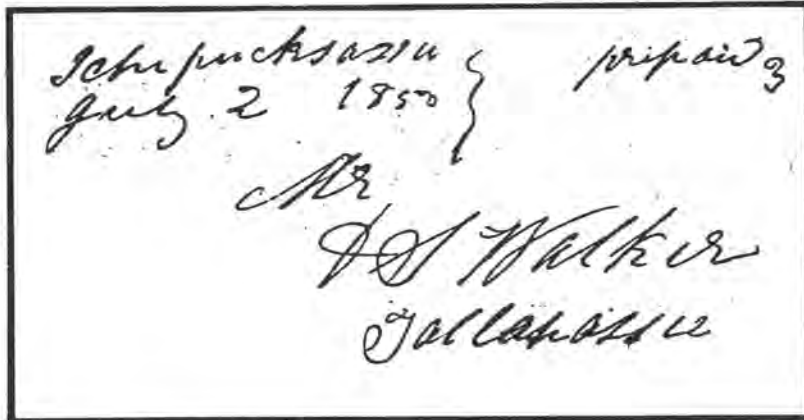 Ichepucksassa
July 2 1850 } prepaid 3
Mr
D S Walker
Tallahassee